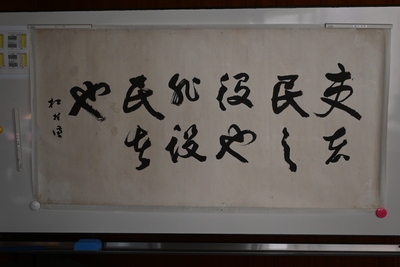 吏者
民之
役也
非役
民者
也